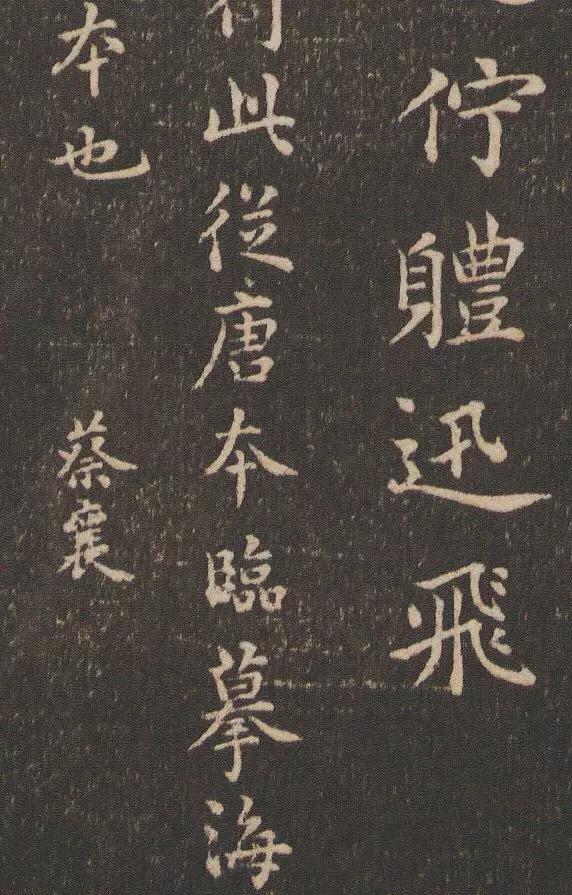 佇軆迅飛
此從唐本臨摹海
本也
蔡襄